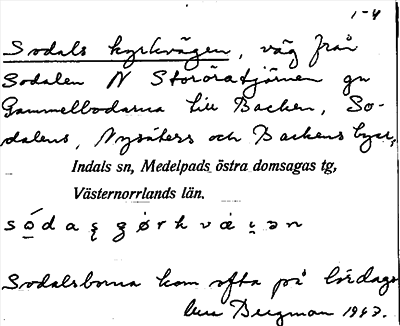 1-4
Sodals kyrkvägen, väg från
Sodalen N Storöratjärnen gm
Gammelbodarna till Backen, So-
dalens, Nysäters och Backens byar,
Indals sn, Medelpads östra domsagas tg,
Västernorrlands län.
Sodalsborna kom ofta på lördags
Bergman 1943.